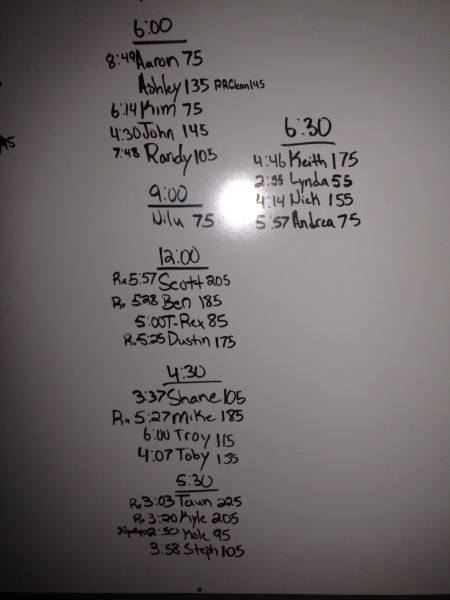 6:00
8:49 Aaron 75
Ashley 135 PR Clean 145
6:14 Kim 75
4:30 John 145
7:48 Randy 105
9:00
Nilu 75
12:00
Rx 5:57 Scott 205
Rx 5:28 Ben 185
5:00 T-Rex 85
Rx 5:25 Dustin 175
4:30
3:37 Shane 105
Rx 5:27 Mike 185
6:00 Troy 115
4:07 Toby 135
5:30
Rx 3:03 Taun 225
Rx 3:20 Kyle 205
2:50 Kole 95
3:58 Steph 105
6:30
4:46 Keith 175
2:55 Lynda 55
4:14 Nick 155
5:57 Andrea 75